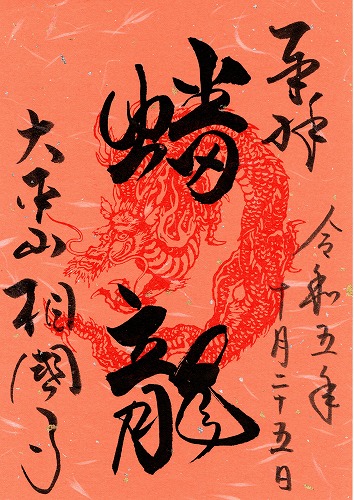 奉拝
令和五年
十月二十五日
蟠龍
大本山相國寺